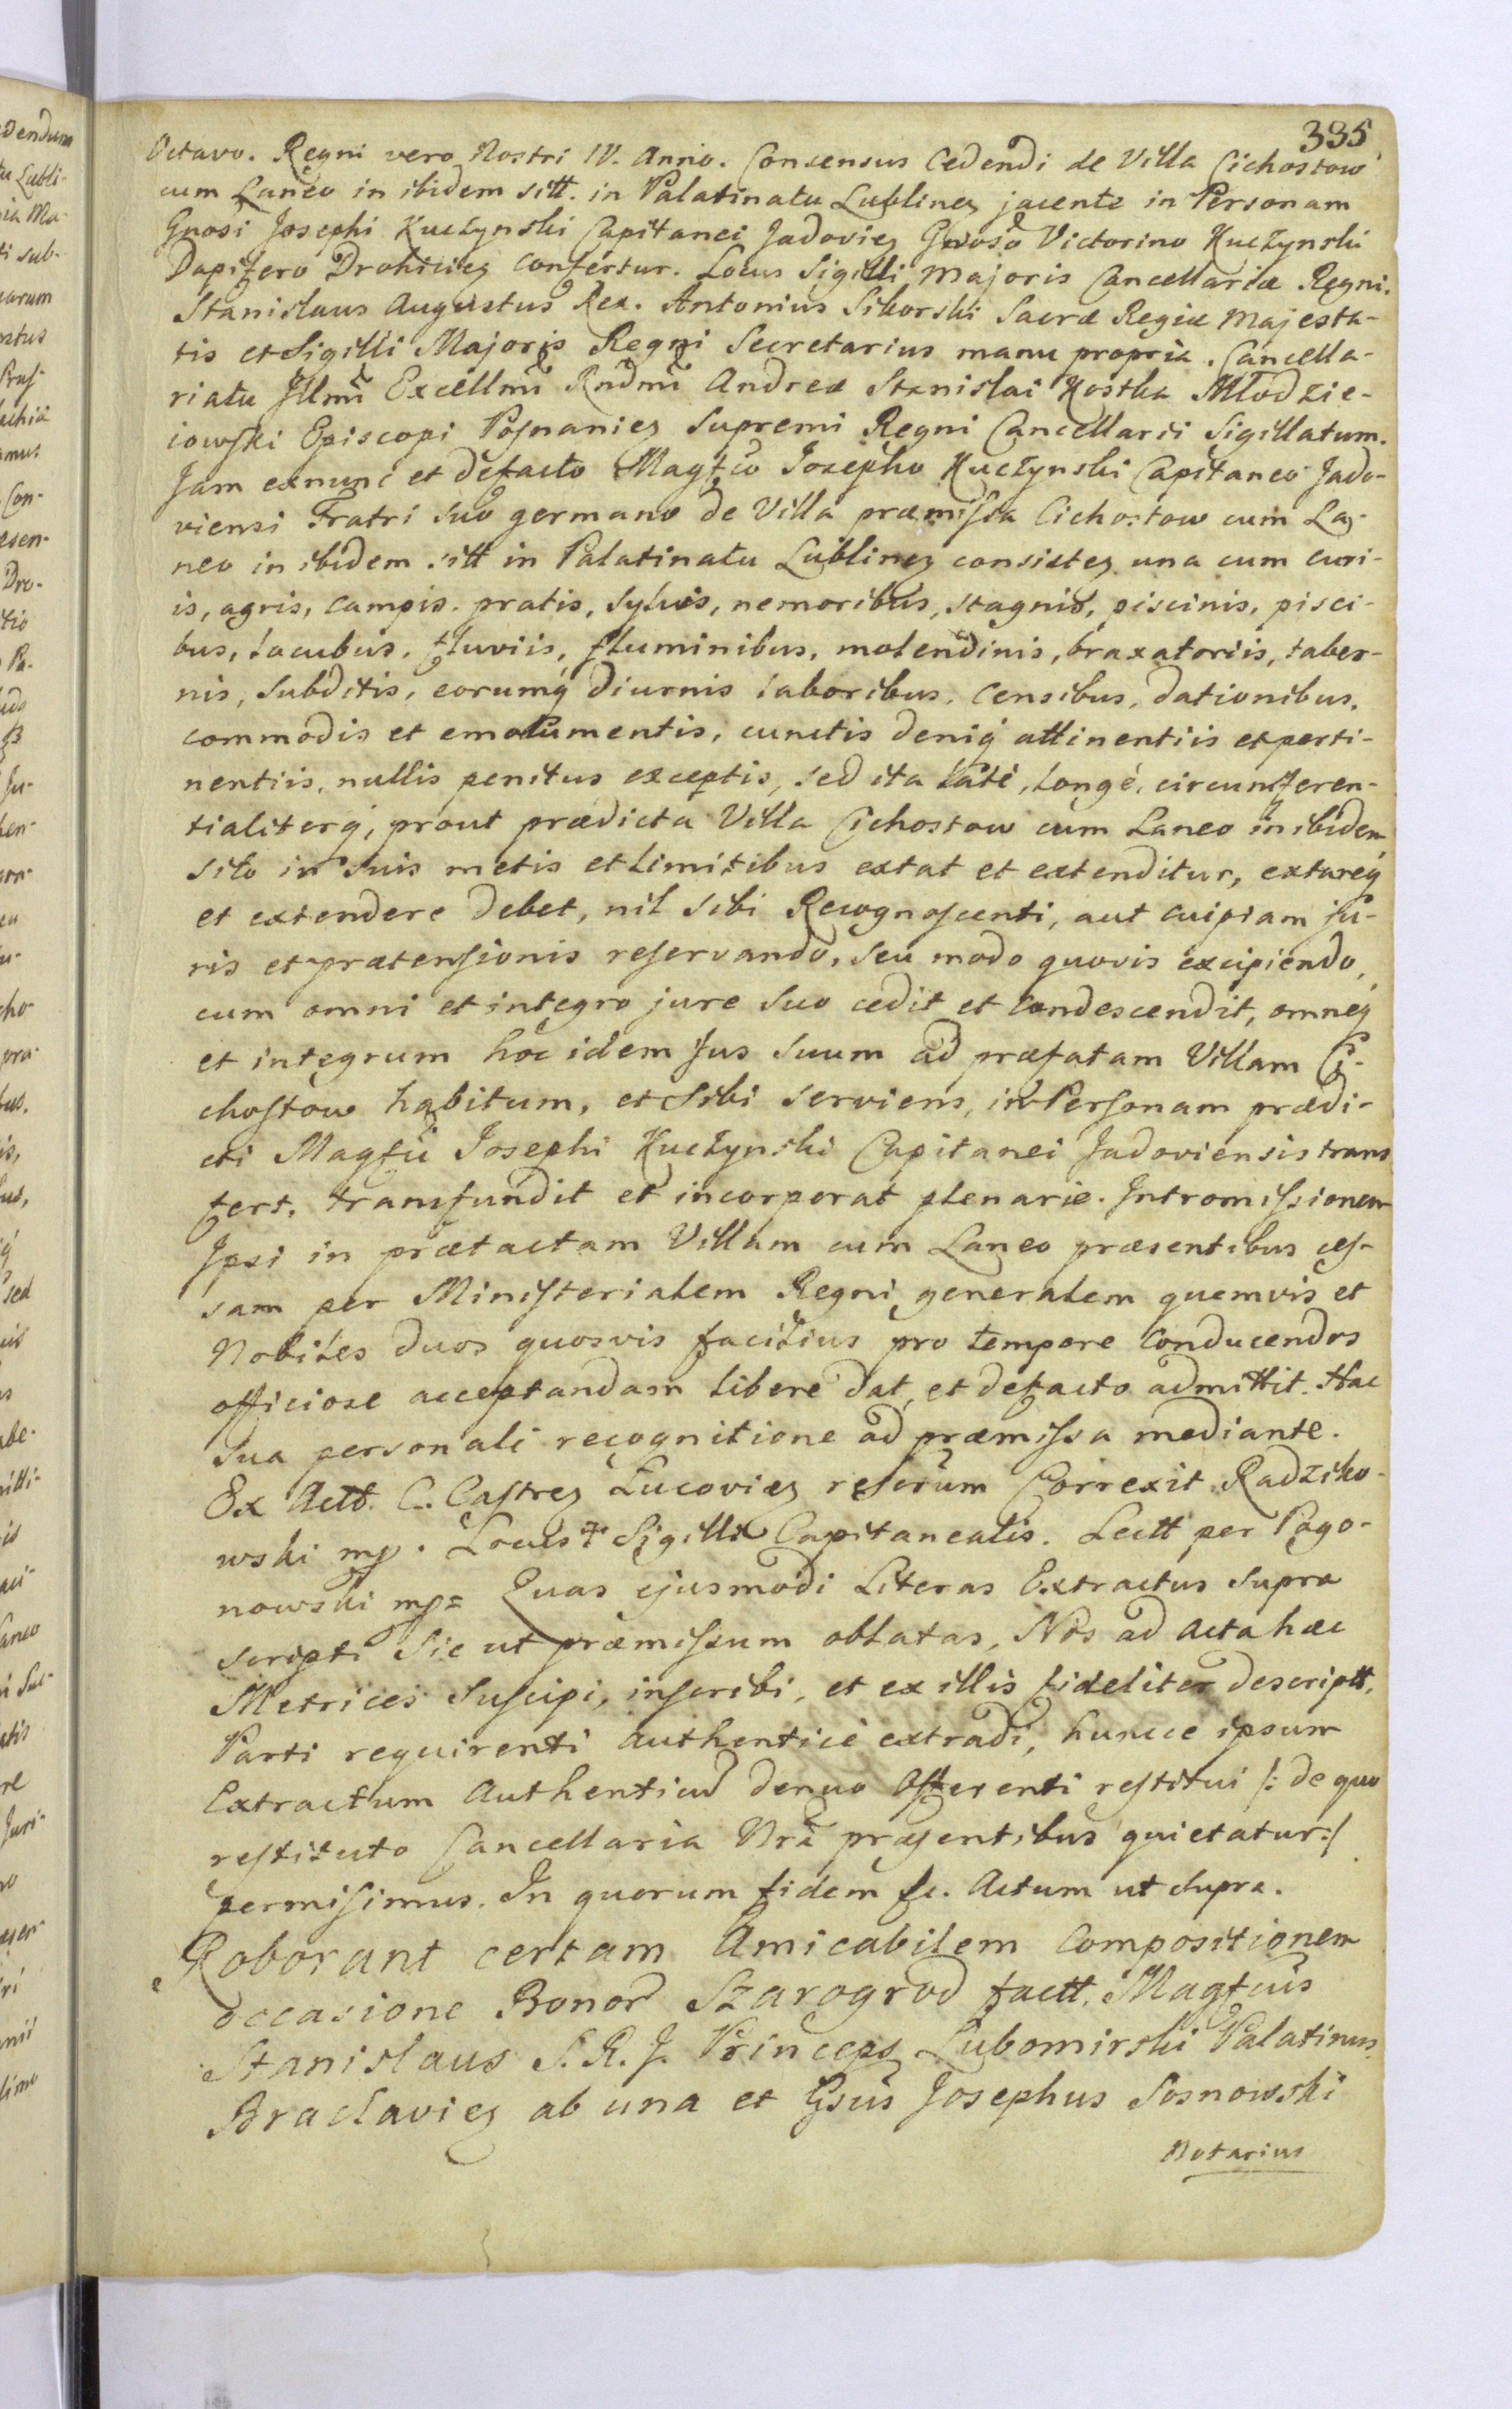 335
Octavo. Regni vero Nostri IV. Anno. Consensus Cedendi de Villa Cichostow
cum Laneo in ibidem sitt. in Palatinatu Lublineꝫ jacente in Personam
Gnosi Josephi Kuczynski Capitanei Jadovieꝫ Gnoso Victorino Kuczynski
Dapifero Drohicieꝫ confertur. Locus Sigilli Majoris Cancellariæ Regni.
Stanislaus Augustus Rex. Antonius Sikorski Sacræ Regiæ Majesta-
tis et Sigilli Majoris Regni Secretarius manu propria. Cancella-
riatu Illmi Excellmi Rndmi Andreæ Stanislai Kostka Młodzie-
iowski Episcopi Posnanieꝫ Supremi Regni Cancellarii Sigillatum.
Jam exnunc et defacto Magfco Josepho Kuczynski Capitaneo Jado-
viensi Fratri suo germano de Villa præmissa Cichostow cum La-
neo in ibidem sitt in Palatinatu Lublineꝫ consisteꝫ una cum curi-
is, agris, campis. pratis, sylvis, nemoribus, stagnis, piscinis, pisci-
bus, lacubus, fluviis, fluminibus, molendinis, braxatoriis, taber-
nis, subditis, eorumq́ diurnis laboribus, censibus, dationibus,
commodis et emolumentis, cunctis deniq́ attinentiis et perti-
nentiis, nullis penitus exceptis, sed ita laté, longé, circumferen-
tialiterq́, prout prædicta Villa Cichostow cum Laneo in ibidem
sito in suis metis et limitibus extat et extenditur, extareq́
et extendere debet, nil sibi Recognoscenti, aut cuipiam ju-
ris et prætensionis reservando, seu modo quovis excipiendo,
cum omni et integro jure suo cedit et condescendit, omneq́
et integrum hoc idem Jus suum ad præfatam Villam Ci-
chostow habitum, et sibi serviens, in Personam prædi-
cti Magfci Josephi Kuczynski Capitanei Jadoviensis trans
fert, transfundit et incorporat plenarie. Intromissionem
Ipsi in prætactam Villam cum Laneo præsentibus ces-
sam per Ministerialem Regni generalem quemvis et
Nobiles duos quosvis facilius pro tempore conducendos
officiose acceptandam libere dat, et defacto admittit. Hac
sua personali recognitione ad præmissa mediante.
Ex Actt. C. Castreꝫ Lucovieꝫ reserum Correxit Radziko-
wski mp. Locus Sigilli Capitanealis. Lectt per Pogo-
nowski mp= Quas ejusmodi Literas Extractus supra
scripti sic ut præmissum oblatas, Nos ad Acta hæc
Metrices suscipi, inscribi, et ex illis fideliter descriptt,
Parti requirenti authenticé extradi, huncce ipsum
Extractum Authenticũ denuo Offerenti restitui /: de quo
restituto Cancellaria Nra præsentibus quietatur:/
permisimus. In quorum fidem &c. Actum ut supra.
Roborant certam Amicabilem Compositionem
occasione Bonor Szarogrod factt. Magfcus
Stanislaus S. R. J. Princeps Lubomirski Palatinus
Braclavieꝫ ab una et Gsus Josephus Sosnowski
Notarius